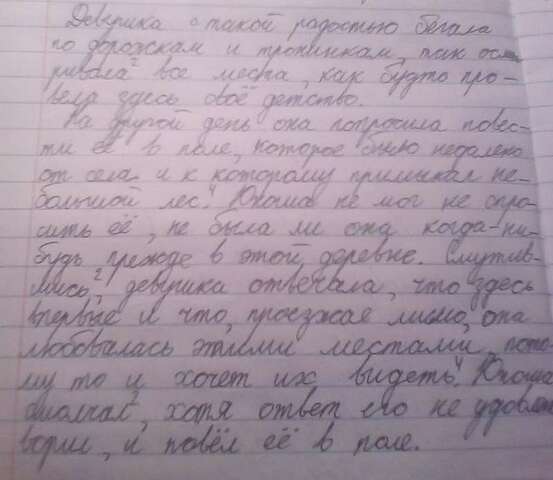 Девушка с такой радостью бегала
по дорожкам и тропинкам, так осмат
ривала² все места, как будто про-
вела здесь своё детство.
На другой день она попросила повес-
ти её в поле, которое было недалеко
от села и к которому примыкал не-
большой лес.⁴ Юноша не мог не спро-
сить её, не была ли она когда-ни-
будь прежде в этой деревне. Смутив-
шись,² девушка отвечала, что здесь
впервые и что, проезжая мимо, она
любовалась этими местами, пото-
му то и хочет их видеть.⁴ Юноша
смолчал, хотя ответ его не удовлет
ворил, и повёл её в поле.